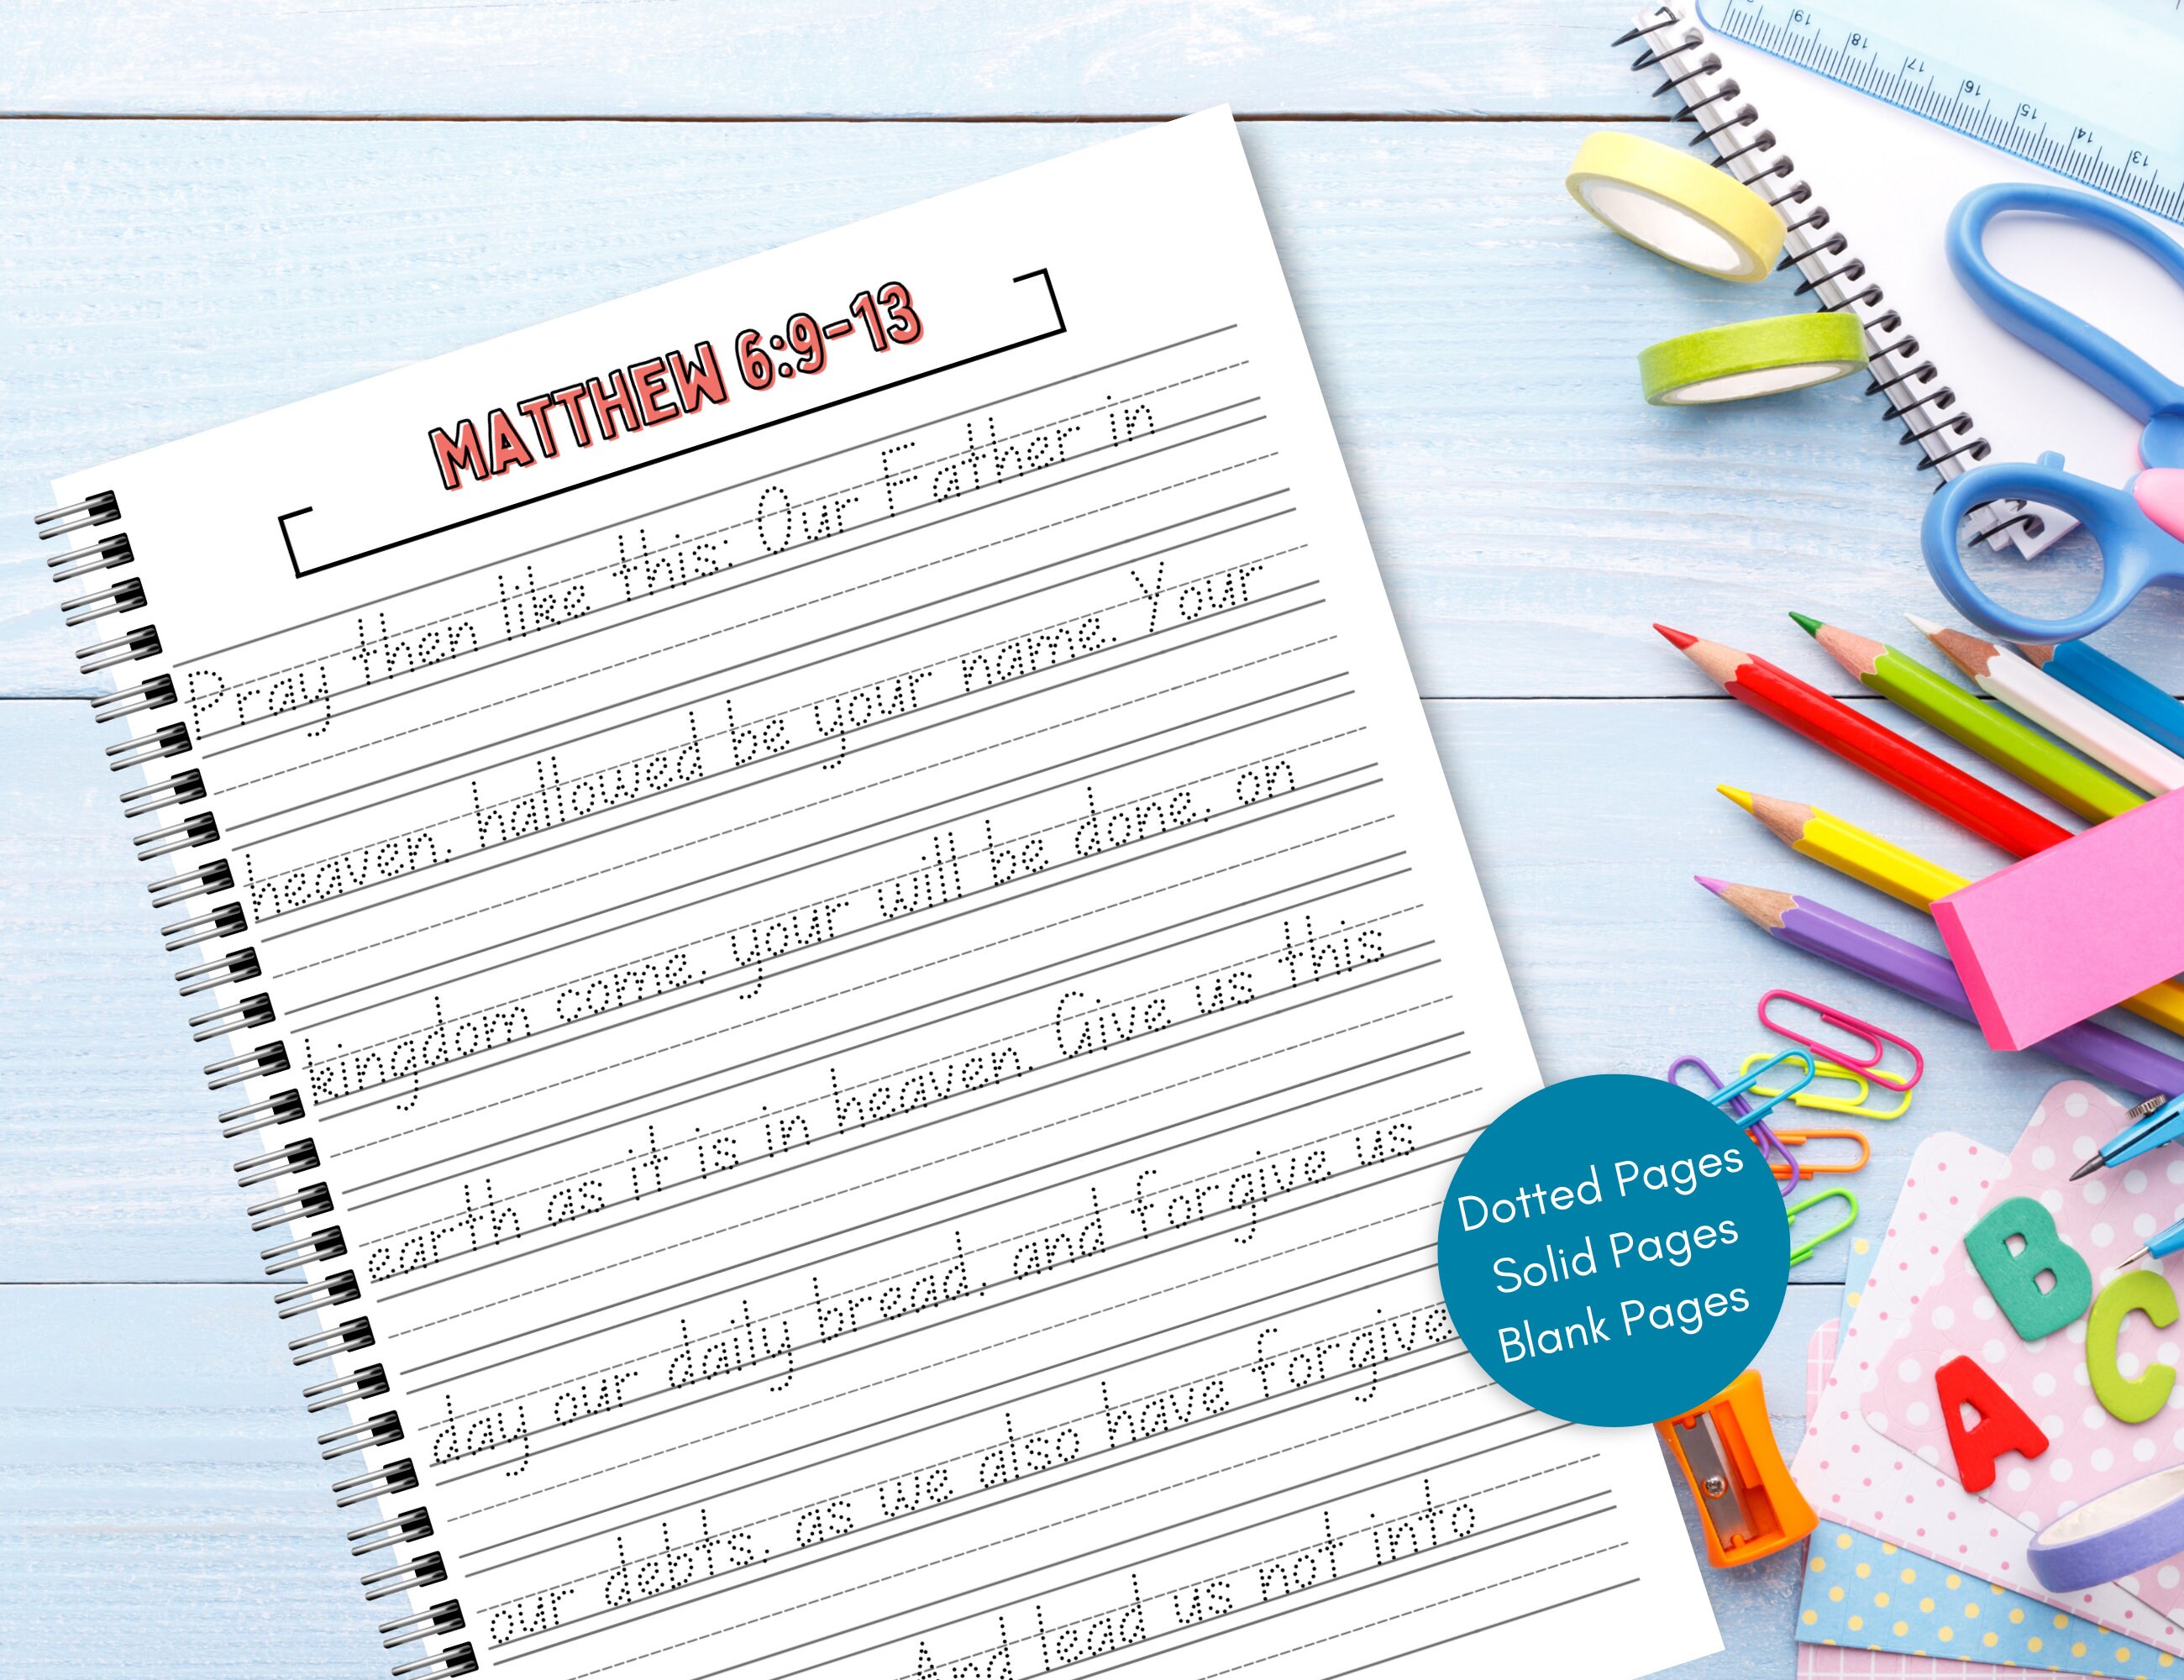 MATTHEW 6:9-13
Pray then like this: Our Father in
heaven, hallowed be your name. Your
kingdom come, your will be done, on
earth as it is in heaven. Give us this
day our daily bread, and forgive us
our debts, as we also have forgive
And lead us not into
Dotted Pages
Solid Pages
Blank Pages
19
18
17
16
15
14
13
B
C
A